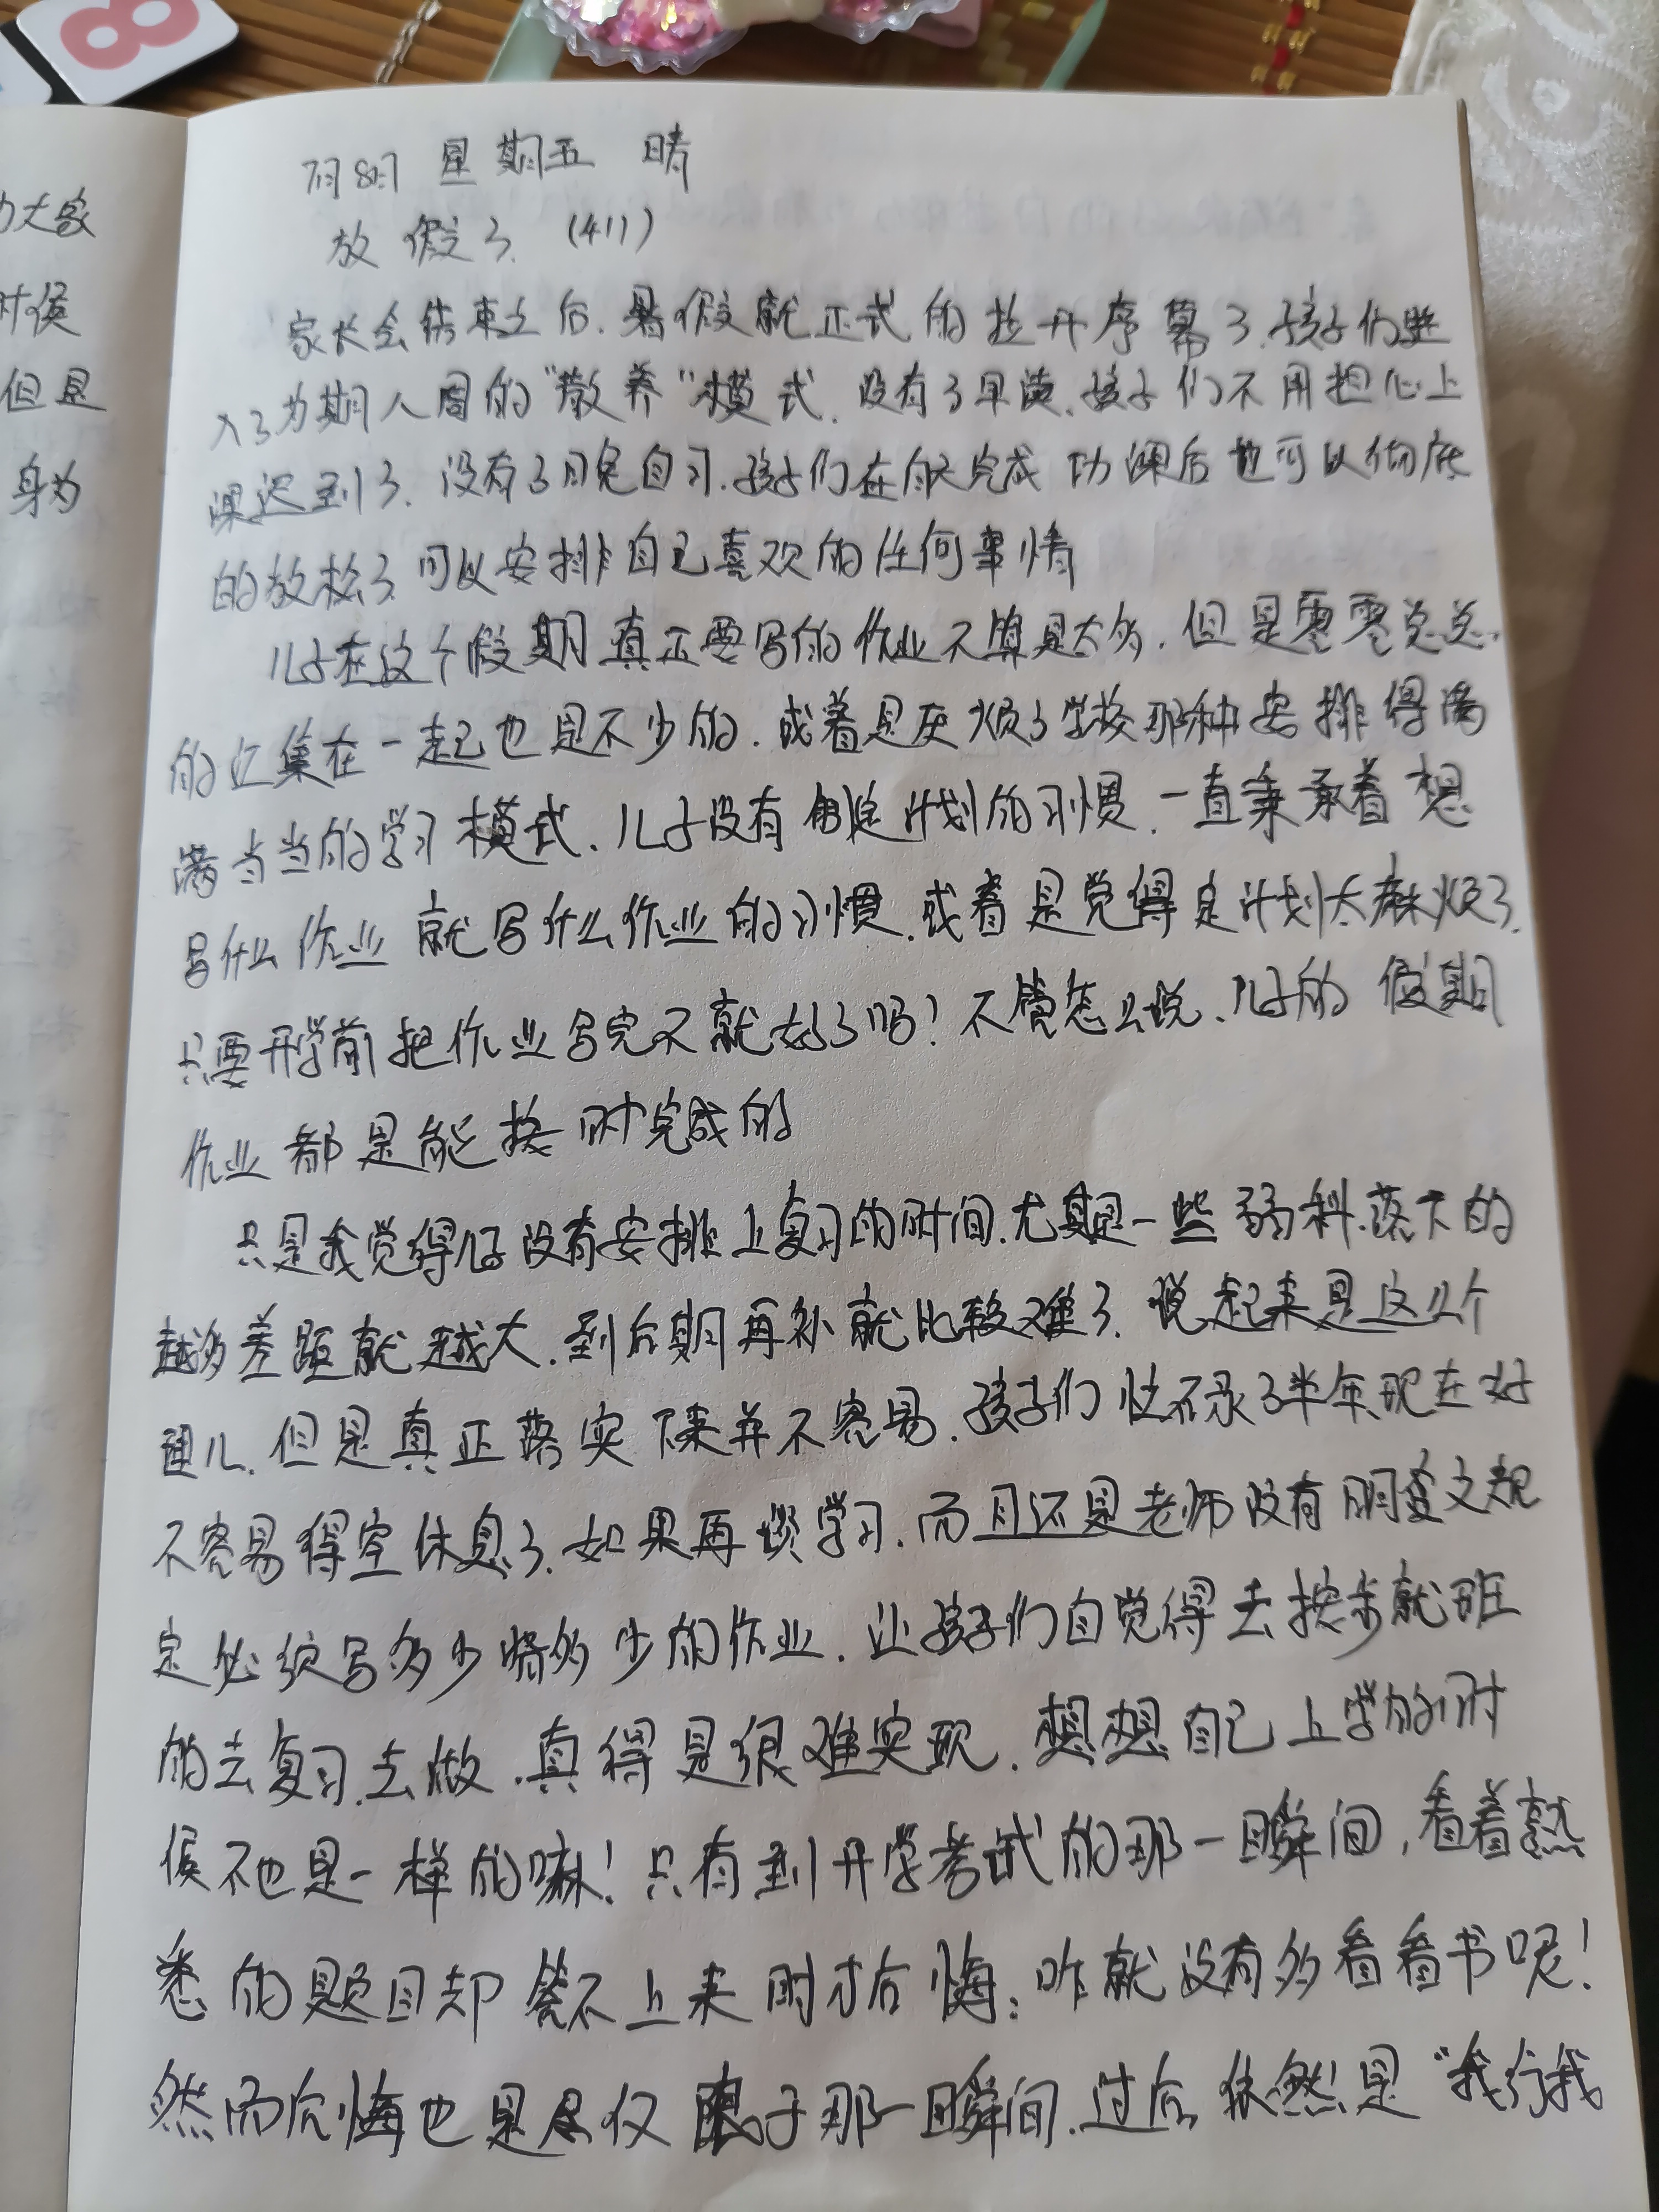 8
力大家
时侯
但是
身为
7月8日 星期五 晴
放假了 (411)
家长会结束之后,暑假就正式的拉开序幕了.孩子们进
入了为期八周的“散养”模式.没有了早读,孩子们不用担心上
课迟到了.没有了晚自习.孩子们在白天完成功课后也可以彻底
的放松了可以安排自己喜欢的任何事情
儿子在这个假期真正要写的作业不算是太多.但是零零总总
的汇集在一起也是不少的.或着是厌烦了学校那种安排得满
满当当的学习模式.儿子没有制定计划的习惯.一直秉承着想
写什么作业就写什么作业的习惯.或着是觉得定计划太麻烦了.
只要开学前把作业写完不就好了吗!不管怎么说.儿子的假期
作业都是能按时完成的
只是我觉得儿子没有安排上复习的时间.尤其是一些弱科.落下的
越多差距就越大.到后期再补就比较难了.说起来是这么个
理儿.但是真正落实下来并不容易.孩子们忙碌了半年现在好
不容易得空休息了.如果再谈学习.而且还是老师没有明文规
定必须写多少做多少的作业.让孩子们自觉得去按步就班
的去复习.去做.真得是很难实现.想想自己上学的时
侯不也是一样的嘛!只有到开学考试的那一瞬间,看着熟
悉的题目却答不上来时才后悔:咋就没有多看看书呢!
然而后悔也是仅限于那一瞬间.过后依然是“我行我